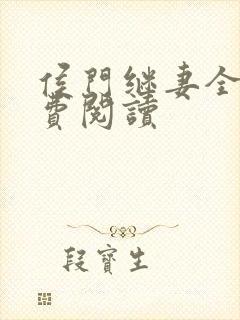 侯門继妻全
費閱讀
段寶生